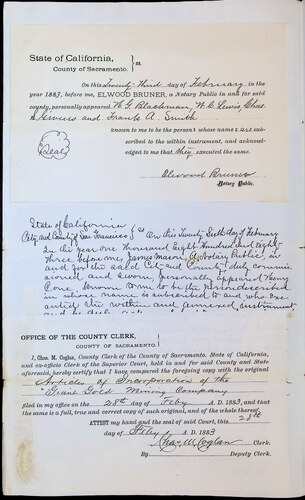 State of California,
County of Sacramento. } ss.
On this Twenty Third day of February in the
year 1883, before me, ELWOOD BRUNER, a Notary Public in and for said
county, personally appeared W. F. Blackman, W. C. Lewis, Chas
and Frank A. Smith
known to me to be the persons whose names are sub-
scribed to the within instrument, and acknowl-
edged to me that they executed the same.
Seal
Elwood Bruner
Notary Public.
State of California
City and County of San Francisco } ss On this Twenty Sixth day of February
in the year one thousand Eight Hundred and Eighty
three before me, James Mason, a Notary Public, in
and for the said City and County, duly commis
sioned and sworn, personally appeared Henry
Cone, known to me to be the person described
in whose name is subscribed to and who exe
cuted the within and annexed instrument
OFFICE OF THE COUNTY CLERK,
COUNTY OF SACRAMENTO.
I, Chas. M. Coglan, County Clerk of the County of Sacramento, State of California,
and ex-officio Clerk of the Superior Court, held in and for said County and State
aforesaid, hereby certify that I have compared the foregoing copy with the original
Articles of Incorporation of the
Grant Gold Mining Company
filed in my office on the 28th day of Feby A. D. 1883, and that
the same is a full, true and correct copy of such original, and of the whole thereof.
ATTEST my hand and the seal of said Court, this 28th
day of Feby A. D. 1883
Chas M Coglan Clerk.
By Deputy Clerk.